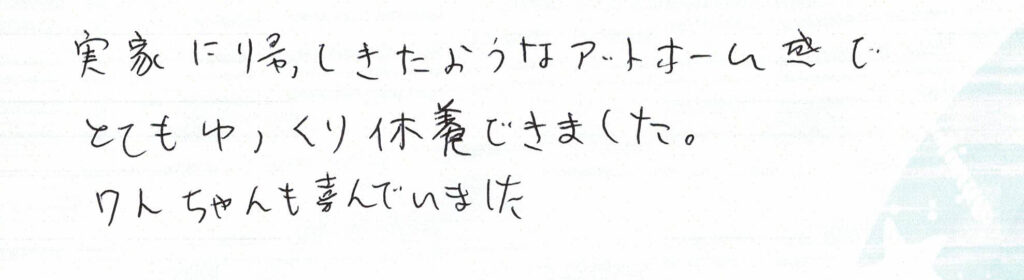 実家に帰ってきたようなアットホーム感で
とてもゆっくり休養できました。
ワンちゃんも喜んでいました